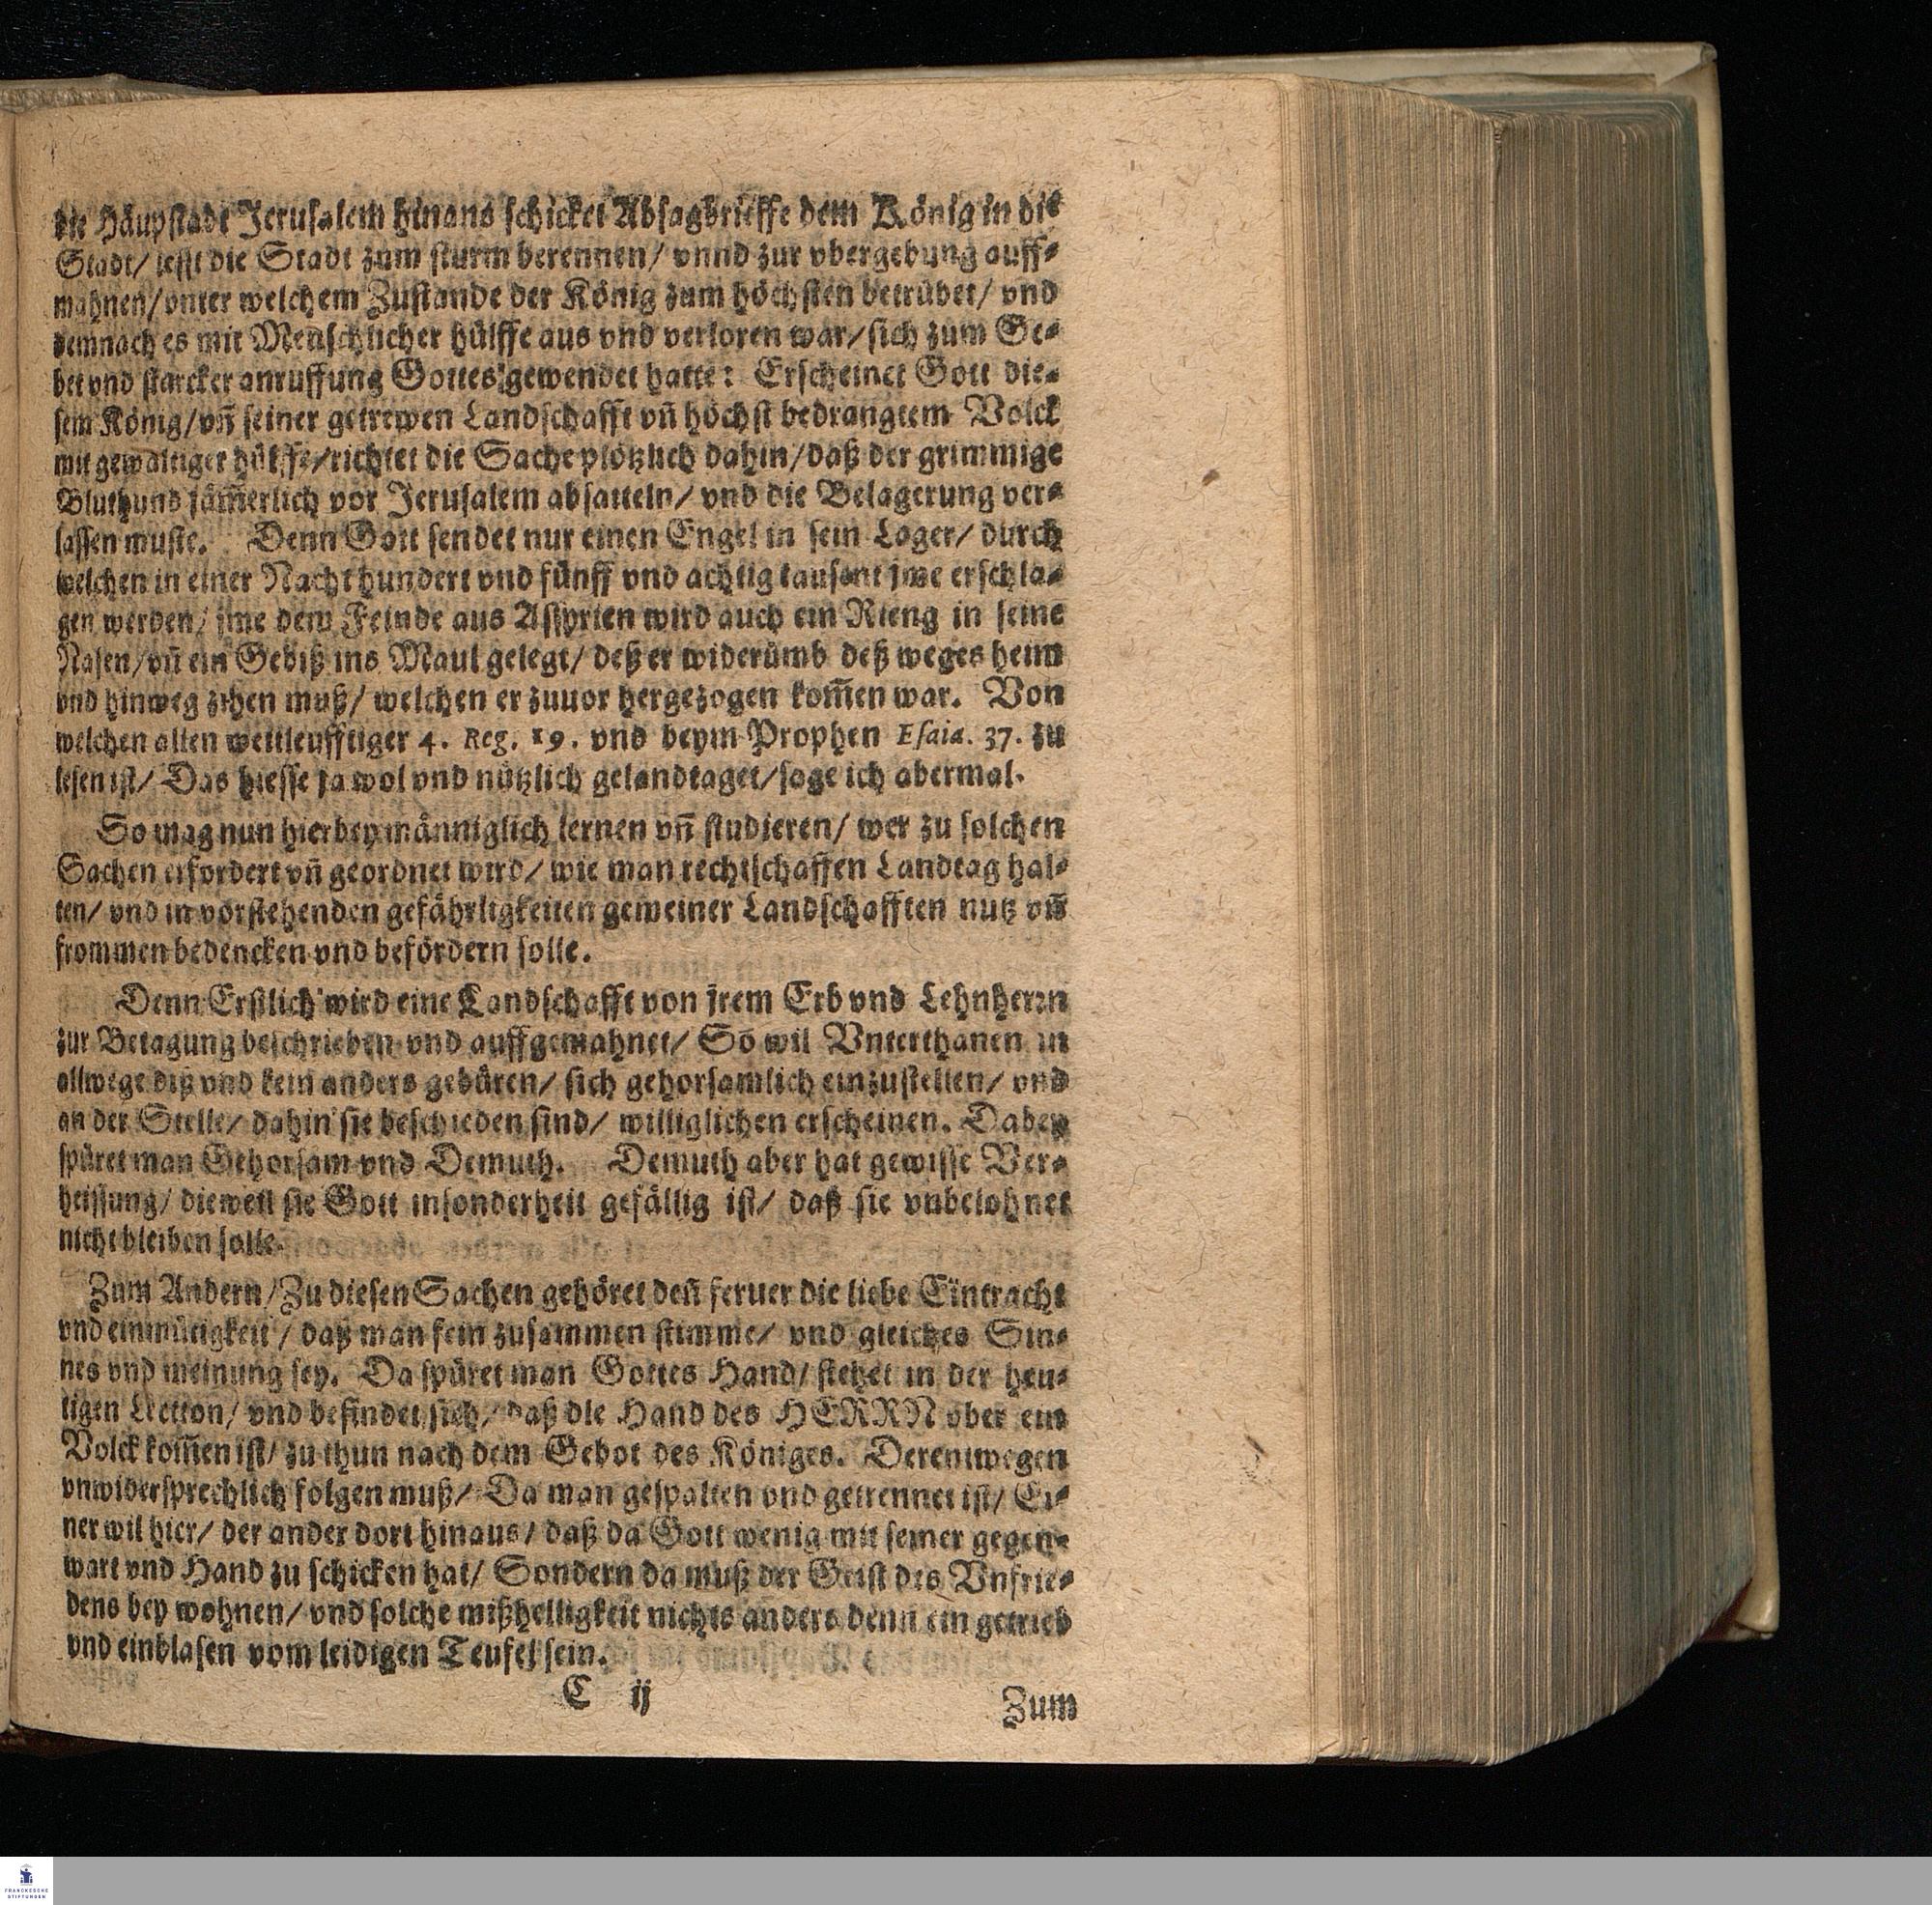 die Häupstadt Jerusalem hinans schicket Absagbrieffe dem König in die
Stadt/ lesst die Stadt zum sturm berennen/ vnnd zur vbergebung auff⸗
mahnen/ vnter welchem Zustande der König zum höchsten betrübet/ vnd
demnach es mit Menschlicher hülffe aus vnd verloren war/ sich zum Ge⸗
bet vnd starcker anruffung Gottes gewendet hatte: Erscheinet Gott die⸗
sem König/ vn̄ seiner getrewen Landschafft vn̄ höchst bedrangtem Volck
mit gewaltiger hülffe/ richtet die Sache plötzlich dahin/ daß der grimmige
Bluthund jäm̄erlich vor Jerusalem absatteln/ vnd die Belagerung ver⸗
lassen muste. Denn Gott sendet nur einen Engel in sein Lager/ durch
welchen in einer Nacht hundert vnd fünff vnd achtig tausent jme erschla⸗
gen werden/ jme dem Feinde aus Assyrien wird auch ein Rieng in seine
Nasen/ vn̄ ein Gebiß ins Maul gelegt/ deß er widerümb deß weges heim
vnd hinweg zihen muß/ welchen er zuuor hergezogen kom̄en war. Von
welchen allen weitleufftiger 4. Reg. 19. vnd beym Prophen Esaia. 37. zu
lesen ist/ Das hiesse ja wol vnd nützlich gelandtaget/ sage ich abermal.
So mag nun hierbey männiglich lernen vn̄ studieren/ wer zu solchen
Sachen erfordert vn̄ geordnet wird/ wie man rechtschaffen Landtag hal⸗
ten/ vnd in vorstehenden gefährligkeiten gemeiner Landschafften nutz vn̄
frommen bedencken vnd befördern solle.
Denn Erstlich wird eine Landschafft von jrem Erb vnd Lehnherrn
zur Betagung beschrieben vnd auffgemahnet/ So wil Vnterthanen in
allwege diß vnd kein anders gebüren/ sich gehorsamlich einzustellen/ vnd
an der Stelle/ dahin sie beschieden sind/ williglichen erscheinen. Dabey
spüret man Gehorsam vnd Demuth. Demuth aber hat gewisse Ver⸗
heissung/ dieweil sie Gott insonderheit gefällig ist/ daß sie vnbelohnet
nicht bleiben solle.
Zum Andern/ Zu diesen Sachen gehöret den̄ feruer die liebe Eintracht
vnd einmütigkeit/ daß man fein zusammen stimme/ vnd gleiches Sin⸗
nes vnd meinung sey. Da spüret man Gottes Hand/ stehet in der heu⸗
tigen Lection/ vnd befindet sich/ daß die Hand des HERRN vber ein
Volck kom̄en ist/ zu thun nach dem Gebot des Königes. Derentwegen
vnwidersprechlich folgen muß/ Da man gespalten vnd getrennet ist/ Ei⸗
ner wil hier/ der ander dort hinaus/ daß da Gott wenig mit seiner gegen⸗
wart vnd Hand zu schicken hat/ Sondern da muß der Geist des Vnfrie⸗
dens bey wohnen/ vnd solche mißhelligkeit nichts anders denn ein getrieb
vnd einblasen vom leidigen Teufel sein.
C ij
Zum
FRANCKESCHE
STIFTUNGEN